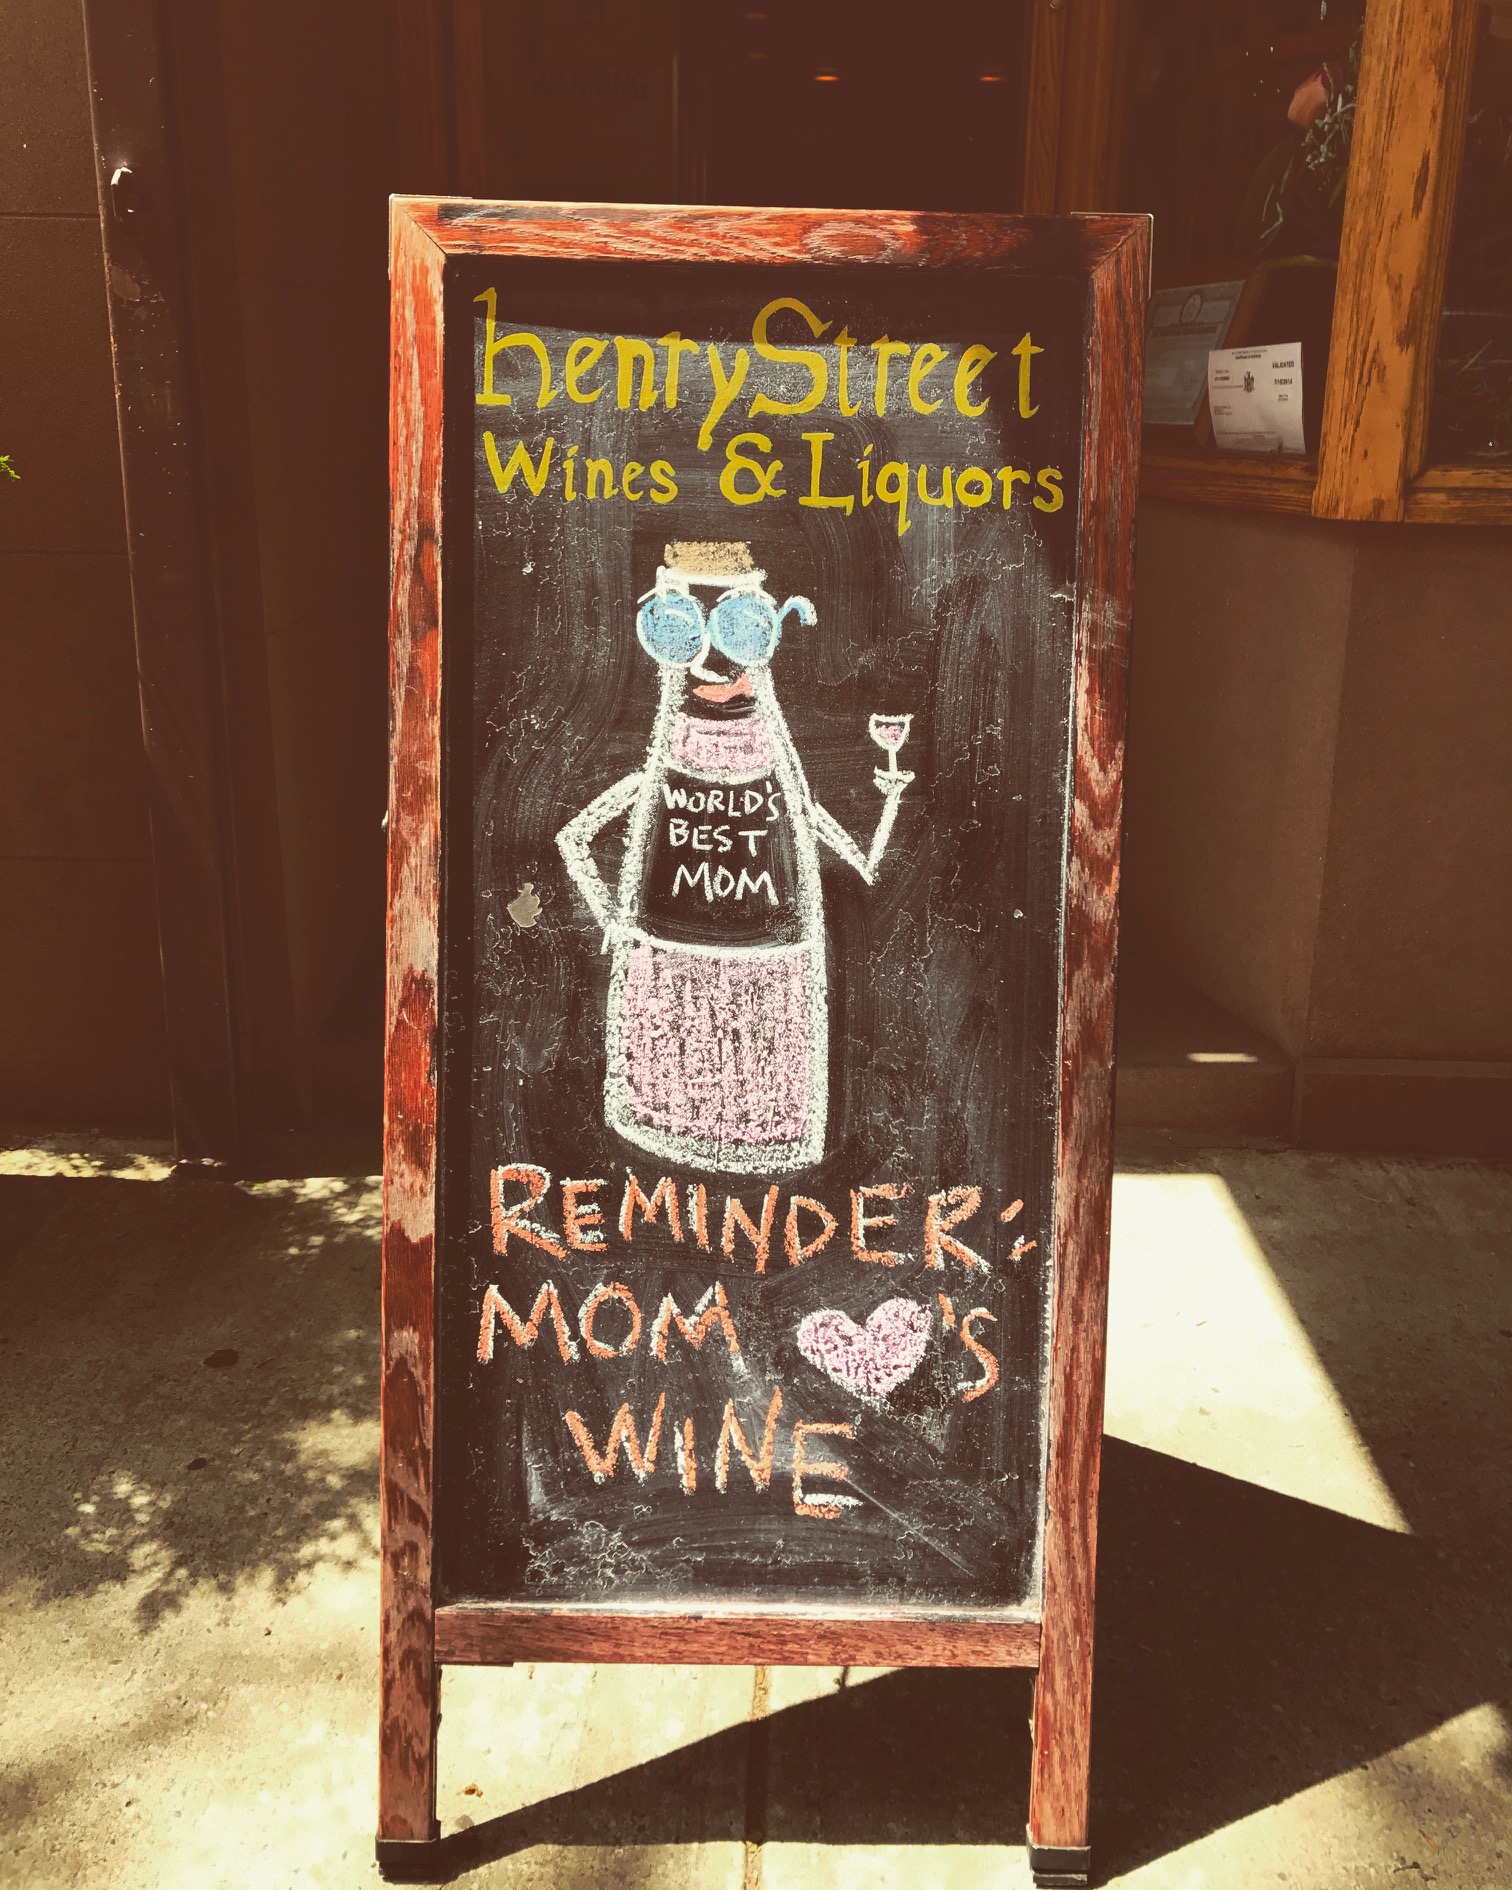 henry Street
Wines & Liquors
WORLD'S
BEST
MOM
REMINDER:
MOM ♥'S
WINE
VALIDATED